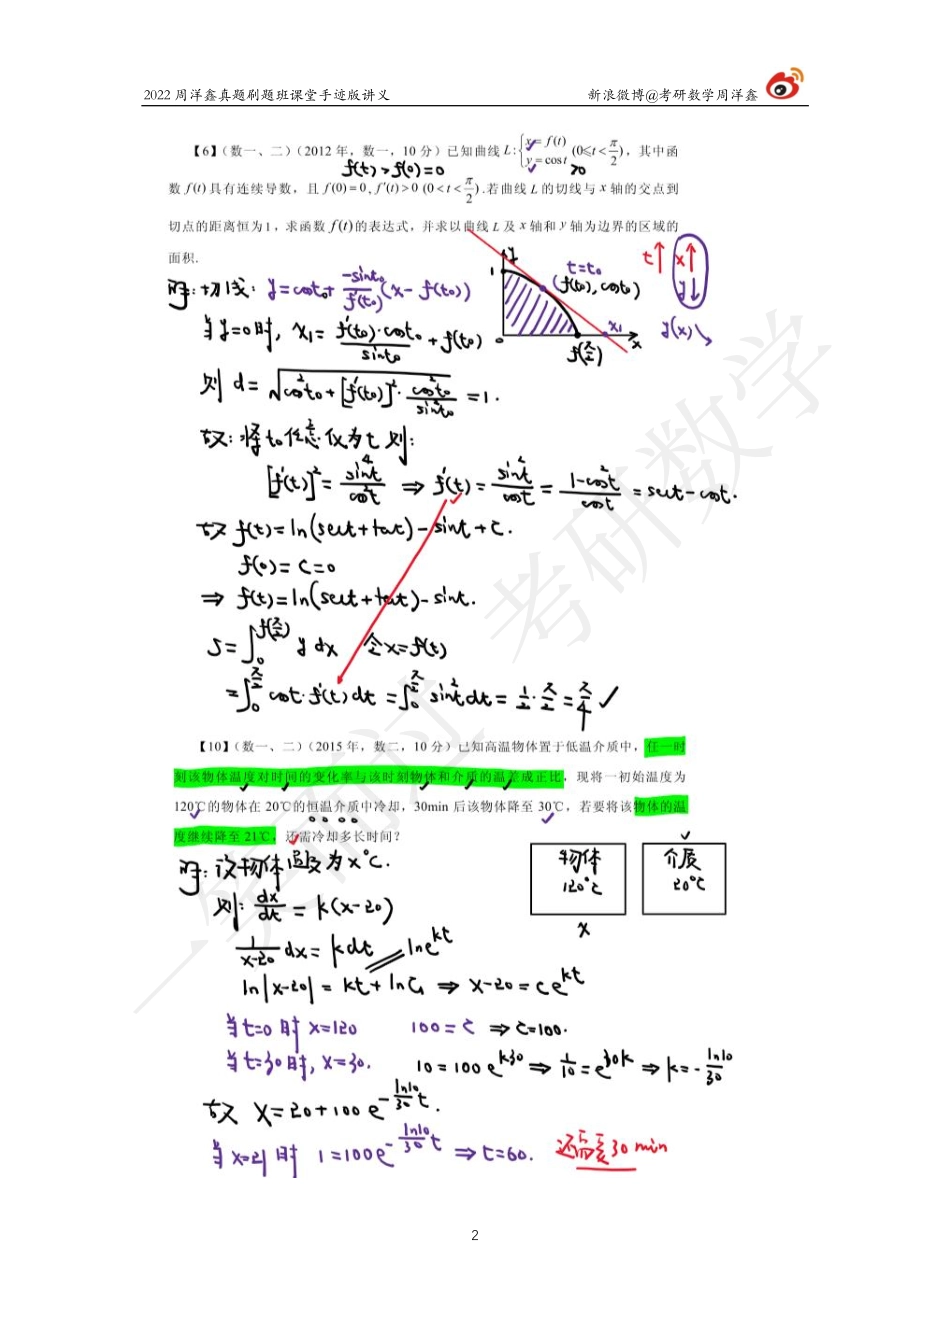 2022 周洋鑫真题刷题班课堂手迹版讲义 新浪微博@考研数学周洋鑫
【6】(数一、二)(2012 年,数一,10 分)已知曲线 L:{x = f(t) y = cos t (0≤t<π/2),其中函
f(t)>f(0)=0 >0
数 f(t) 具有连续导数,且 f(0)=0, f'(t)>0 (0<t<π/2).若曲线 L 的切线与 x 轴的交点到
切点的距离恒为 1,求函数 f(t) 的表达式,并求以曲线 L 及 x 轴和 y 轴为边界的区域的
面积.
y 1 t=t₀ (f(t₀), cost₀) x₁ x o f(π/2)
t↑ x↑ y↓ y(x)↘
解:切线: y=cost₀+ -sint₀/f'(t₀) (x-f(t₀))
当y=0时, x₁= f'(t₀)·cost₀/sint₀ +f(t₀)
则 d=√(cos²t₀+[f'(t₀)]²·cos²t₀/sin²t₀) =1.
故:将t₀任意仅为t 则:
[f'(t)]²= sin⁴t/cos²t ⇒ f'(t)= sin²t/cost = (1-cos²t)/cost = sect-cost.
故 f(t)=ln(sect+tant)-sint+C.
f(0)=C=0
⇒ f(t)=ln(sect+tant)-sint.
S=∫₀^f(π/2) y dx 令x=f(t)
=∫₀^π/2 cost·f'(t)dt =∫₀^π/2 sin²t dt = 1/2·π/2=π/4 ✓
【10】(数一、二)(2015 年,数二,10 分)已知高温物体置于低温介质中,任一时
刻该物体温度对时间的变化率与该时刻物体和介质的温差成正比,现将一初始温度为
120℃的物体在 20℃的恒温介质中冷却,30min 后该物体降至 30℃,若要将该物体的温
度继续降至 21℃,还需冷却多长时间?
解:设物体温度为x℃.
物体 120℃ x
介质 20℃
则: dx/dt = k(x-20)
1/(x-20) dx= kdt lne^kt
ln|x-20| = kt+lnC₁ ⇒ x-20=Ce^kt
当t=0时 x=120 100=C ⇒C=100.
当t=30时, x=30. 10=100e^k30 ⇒ 1/10=e^30k ⇒k=-ln10/30
故 x=20+100e^-(ln10/30)t.
当x=21时 1=100e^-(ln10/30)t ⇒t=60. 还需要30min
2
一笑而过 考研数学